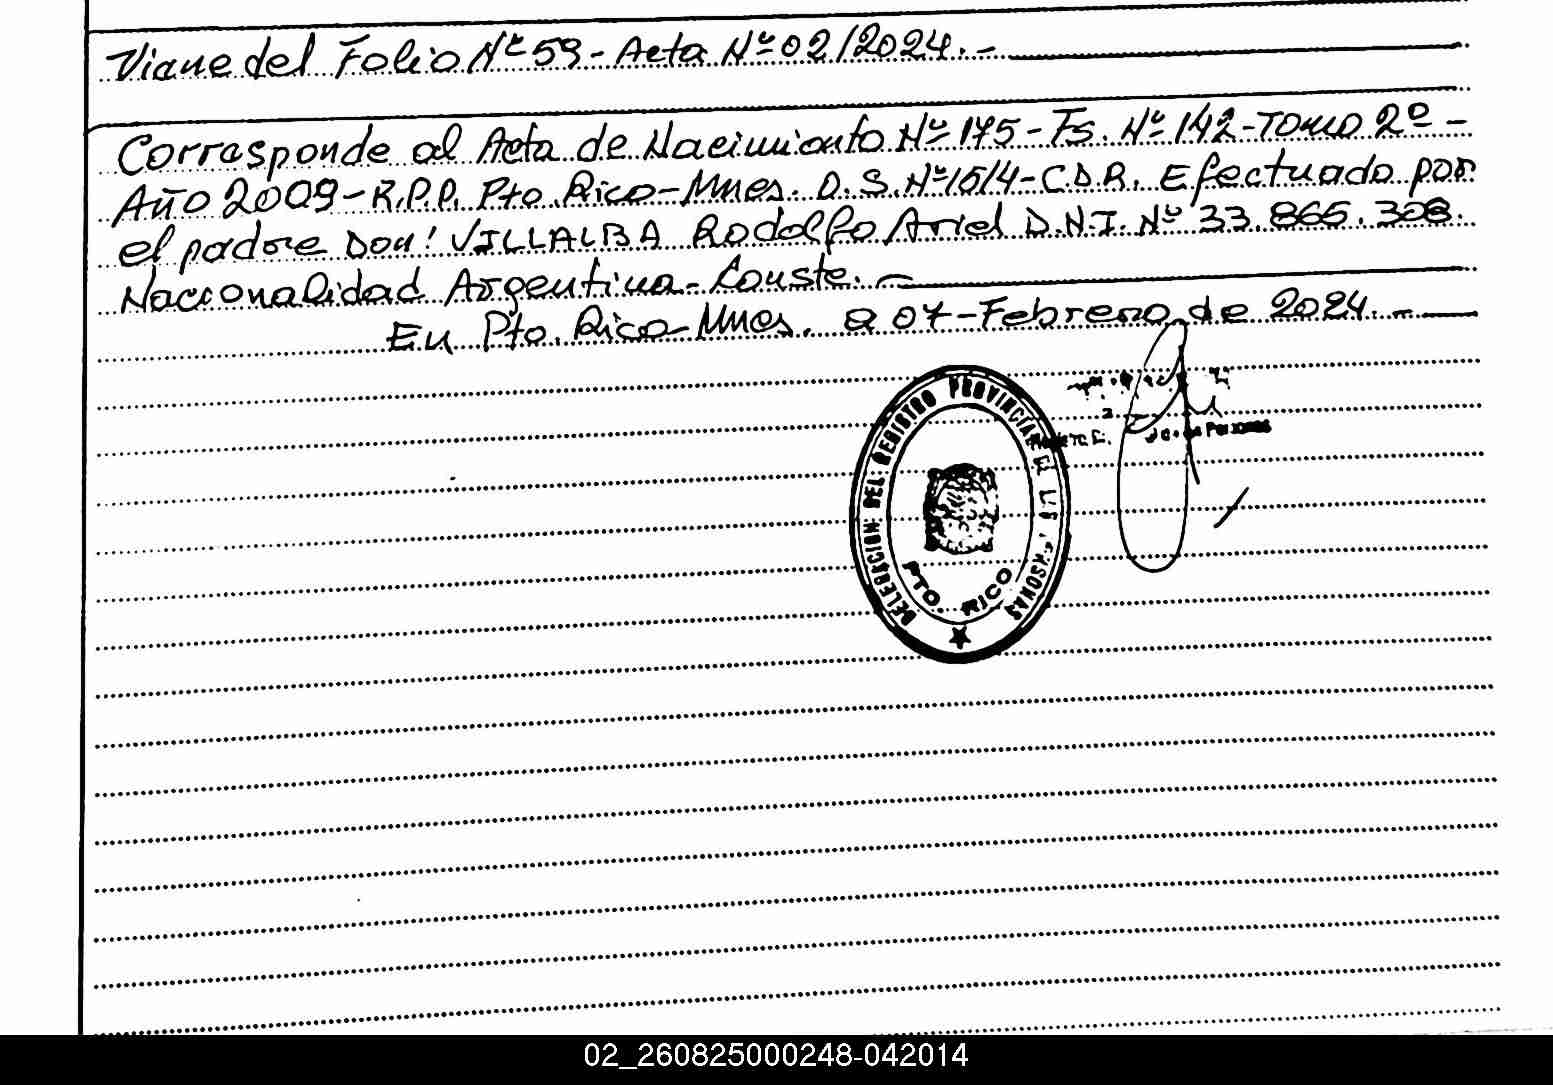 Viene del Folio Nº 59 - Acta Nº 02/2024. -
Corresponde al Acta de Nacimiento Nº 175 - Fs. Nº 142 - Tomo 2º -
Año 2009 - R.P.P. Pto. Rico - Mnes. D.S. Nº 1514 - C.D.R. Efectuado por
el padre Don: VILLALBA Rodolfo Ariel D.N.I. Nº 33.865.308.
Nacionalidad Argentina - Conste. -
En Pto. Rico - Mnes. a 07 - Febrero de 2024. -
DELEGACION DEL REGISTRO PROVINCIAL DE LAS PERSONAS
PTO. RICO
Personas
02_260825000248-042014